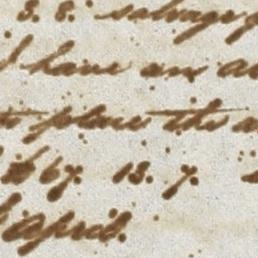 3. 8. salvage
I have an a
place the a
67. 13. 7.
April.